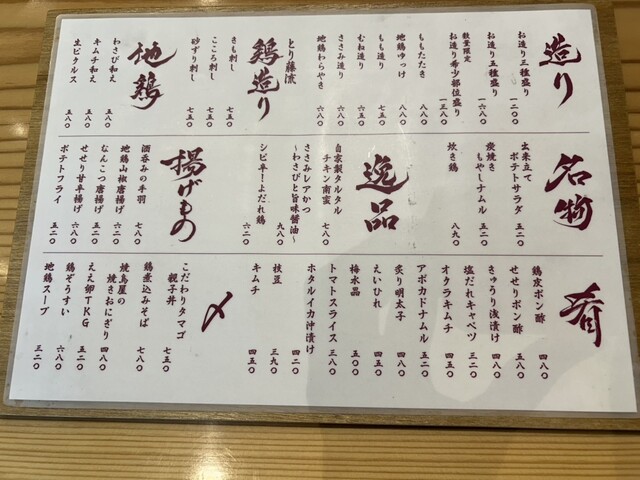 造り
お造り三種盛り 一二〇〇
お造り五種盛り 一六八〇
数量限定
お造り希少部位盛り 一三八〇
ももたたき 八八〇
地鶏ゆっけ 八八〇
もも造り 七五〇
むね造り 六八〇
ささみ造り 六八〇
地鶏わらやき 六八〇
とり藤流
鶏造り
きも刺し 七五〇
こころ刺し 七五〇
砂ずり刺し 七五〇
地鶏
わさび和え 五八〇
キムチ和え 五八〇
生ピタルス 五八〇
名物
出来立て
ポテトサラダ 五二〇
炭焼き
もやしナムル 五二〇
炊き鶏 八九〇
逸品
自家製タルタル
チキン南蛮 七八〇
ささみレアかつ
〜わさびと旨味醤油〜 九八〇
シビ辛！よだれ鶏 六二〇
揚げもの
酒呑みの手羽 七八〇
地鶏山椒唐揚げ 六八〇
なんこつ唐揚げ 六二〇
せせり甘辛揚げ 六六〇
ポテトフライ 五二〇
肴
鶏皮ポン酢 四八〇
せせりポン酢 五八〇
きゅうり浅漬け 四八〇
塩だれキャベツ 三二〇
オクラキムチ 四五〇
アボカドナムル 五二〇
炙り明太子 四八〇
えいひれ 四五〇
梅水晶 四八〇
トマトスライス 三八〇
ホタルイカ沖漬け 四二〇
枝豆 三九〇
キムチ 四五〇
〆
こだわりタマゴ
親子丼 七五〇
鶏煮込みそば 七八〇
焼鳥屋の
焼きおにぎり 四八〇
ええ卵TKG 五二〇
鶏ぞうすい 六八〇
地鶏スープ 三二〇